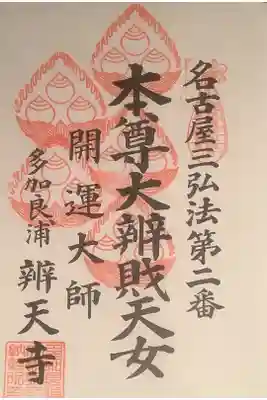 名古屋三弘法第二番
本尊大辨財天女
開運大師
多加良浦 辨天寺